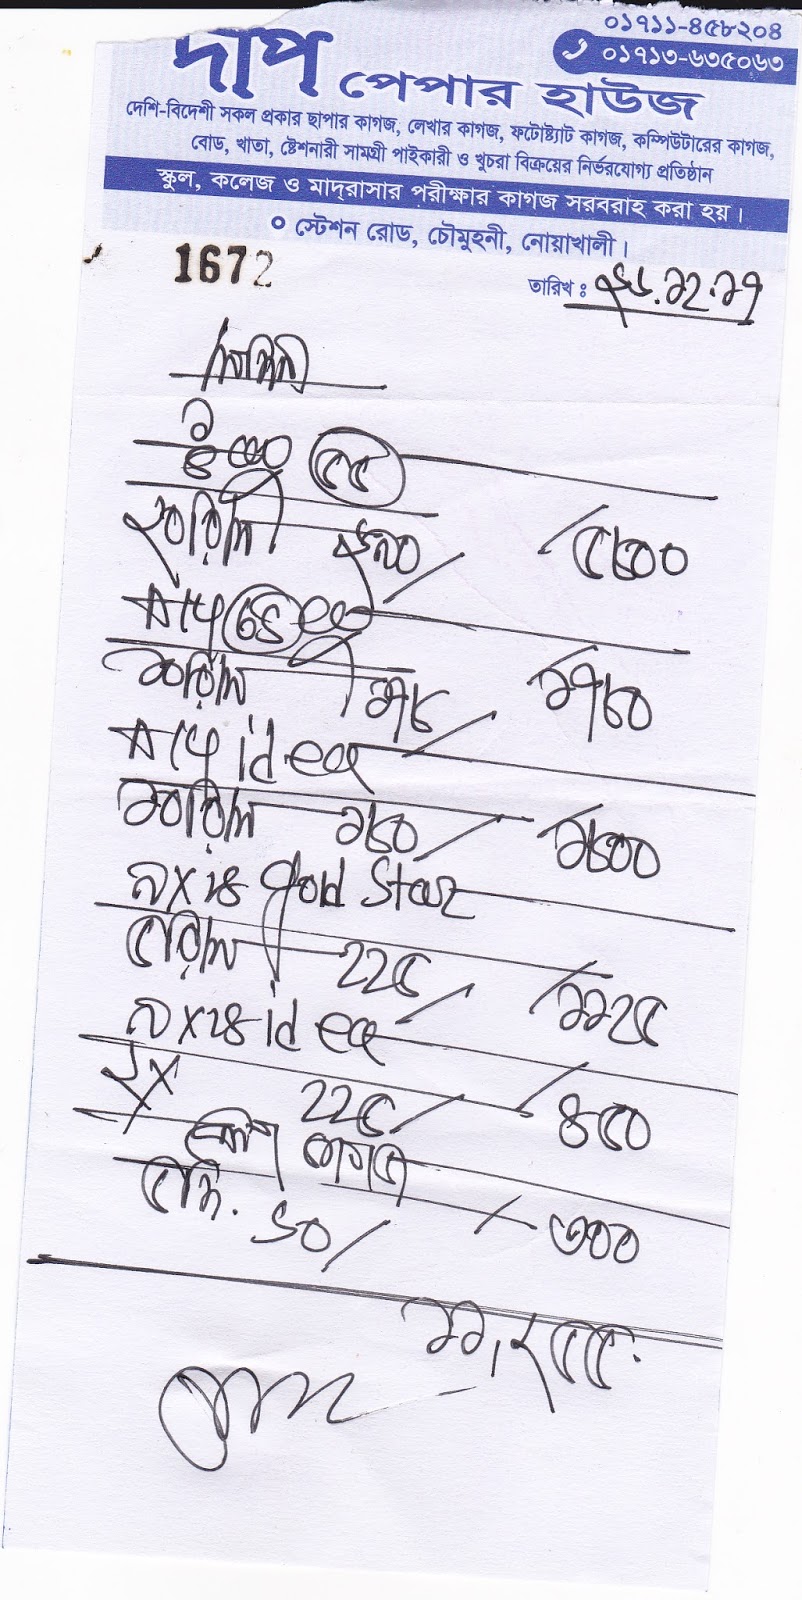 ০১৭১১-৪৫৮২০৪
০১৭১৩-৬৩৫০৬৩
দীপ পেপার হাউজ
দেশি-বিদেশী সকল প্রকার ছাপার কাগজ, লেখার কাগজ, ফটোষ্ট্যাট কাগজ, কম্পিউটারের কাগজ,
বোর্ড, খাতা, ষ্টেশনারী সামগ্রী পাইকারী ও খুচরা বিক্রয়ের নির্ভরযোগ্য প্রতিষ্ঠান
স্কুল, কলেজ ও মাদ্রাসার পরীক্ষার কাগজ সরবরাহ করা হয়।
স্টেশন রোড, চৌমুহনী, নোয়াখালী।
1672
তারিখ : ২৬.১২.১৭
৫৫
২০রিম ২৯০/ ৫৮০০
১০রিম ১৭৮/ ১৭৮০
idea
১০রিম ১৮০/ ১৮০০
gold star
৫রিম ২২৫/ ১১২৫
idea
২x ২২৫/ ৪৫০
কাগজ
৫রিম. ৬০/ ৩০০
১১,২৫৫.